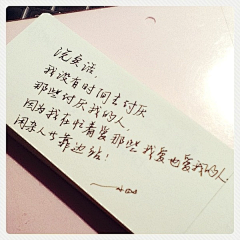 说实话，
我没有时间去讨厌
那些讨厌我的人，
因为我在忙着爱那些我爱也爱我的人，
闲杂人书靠边站！